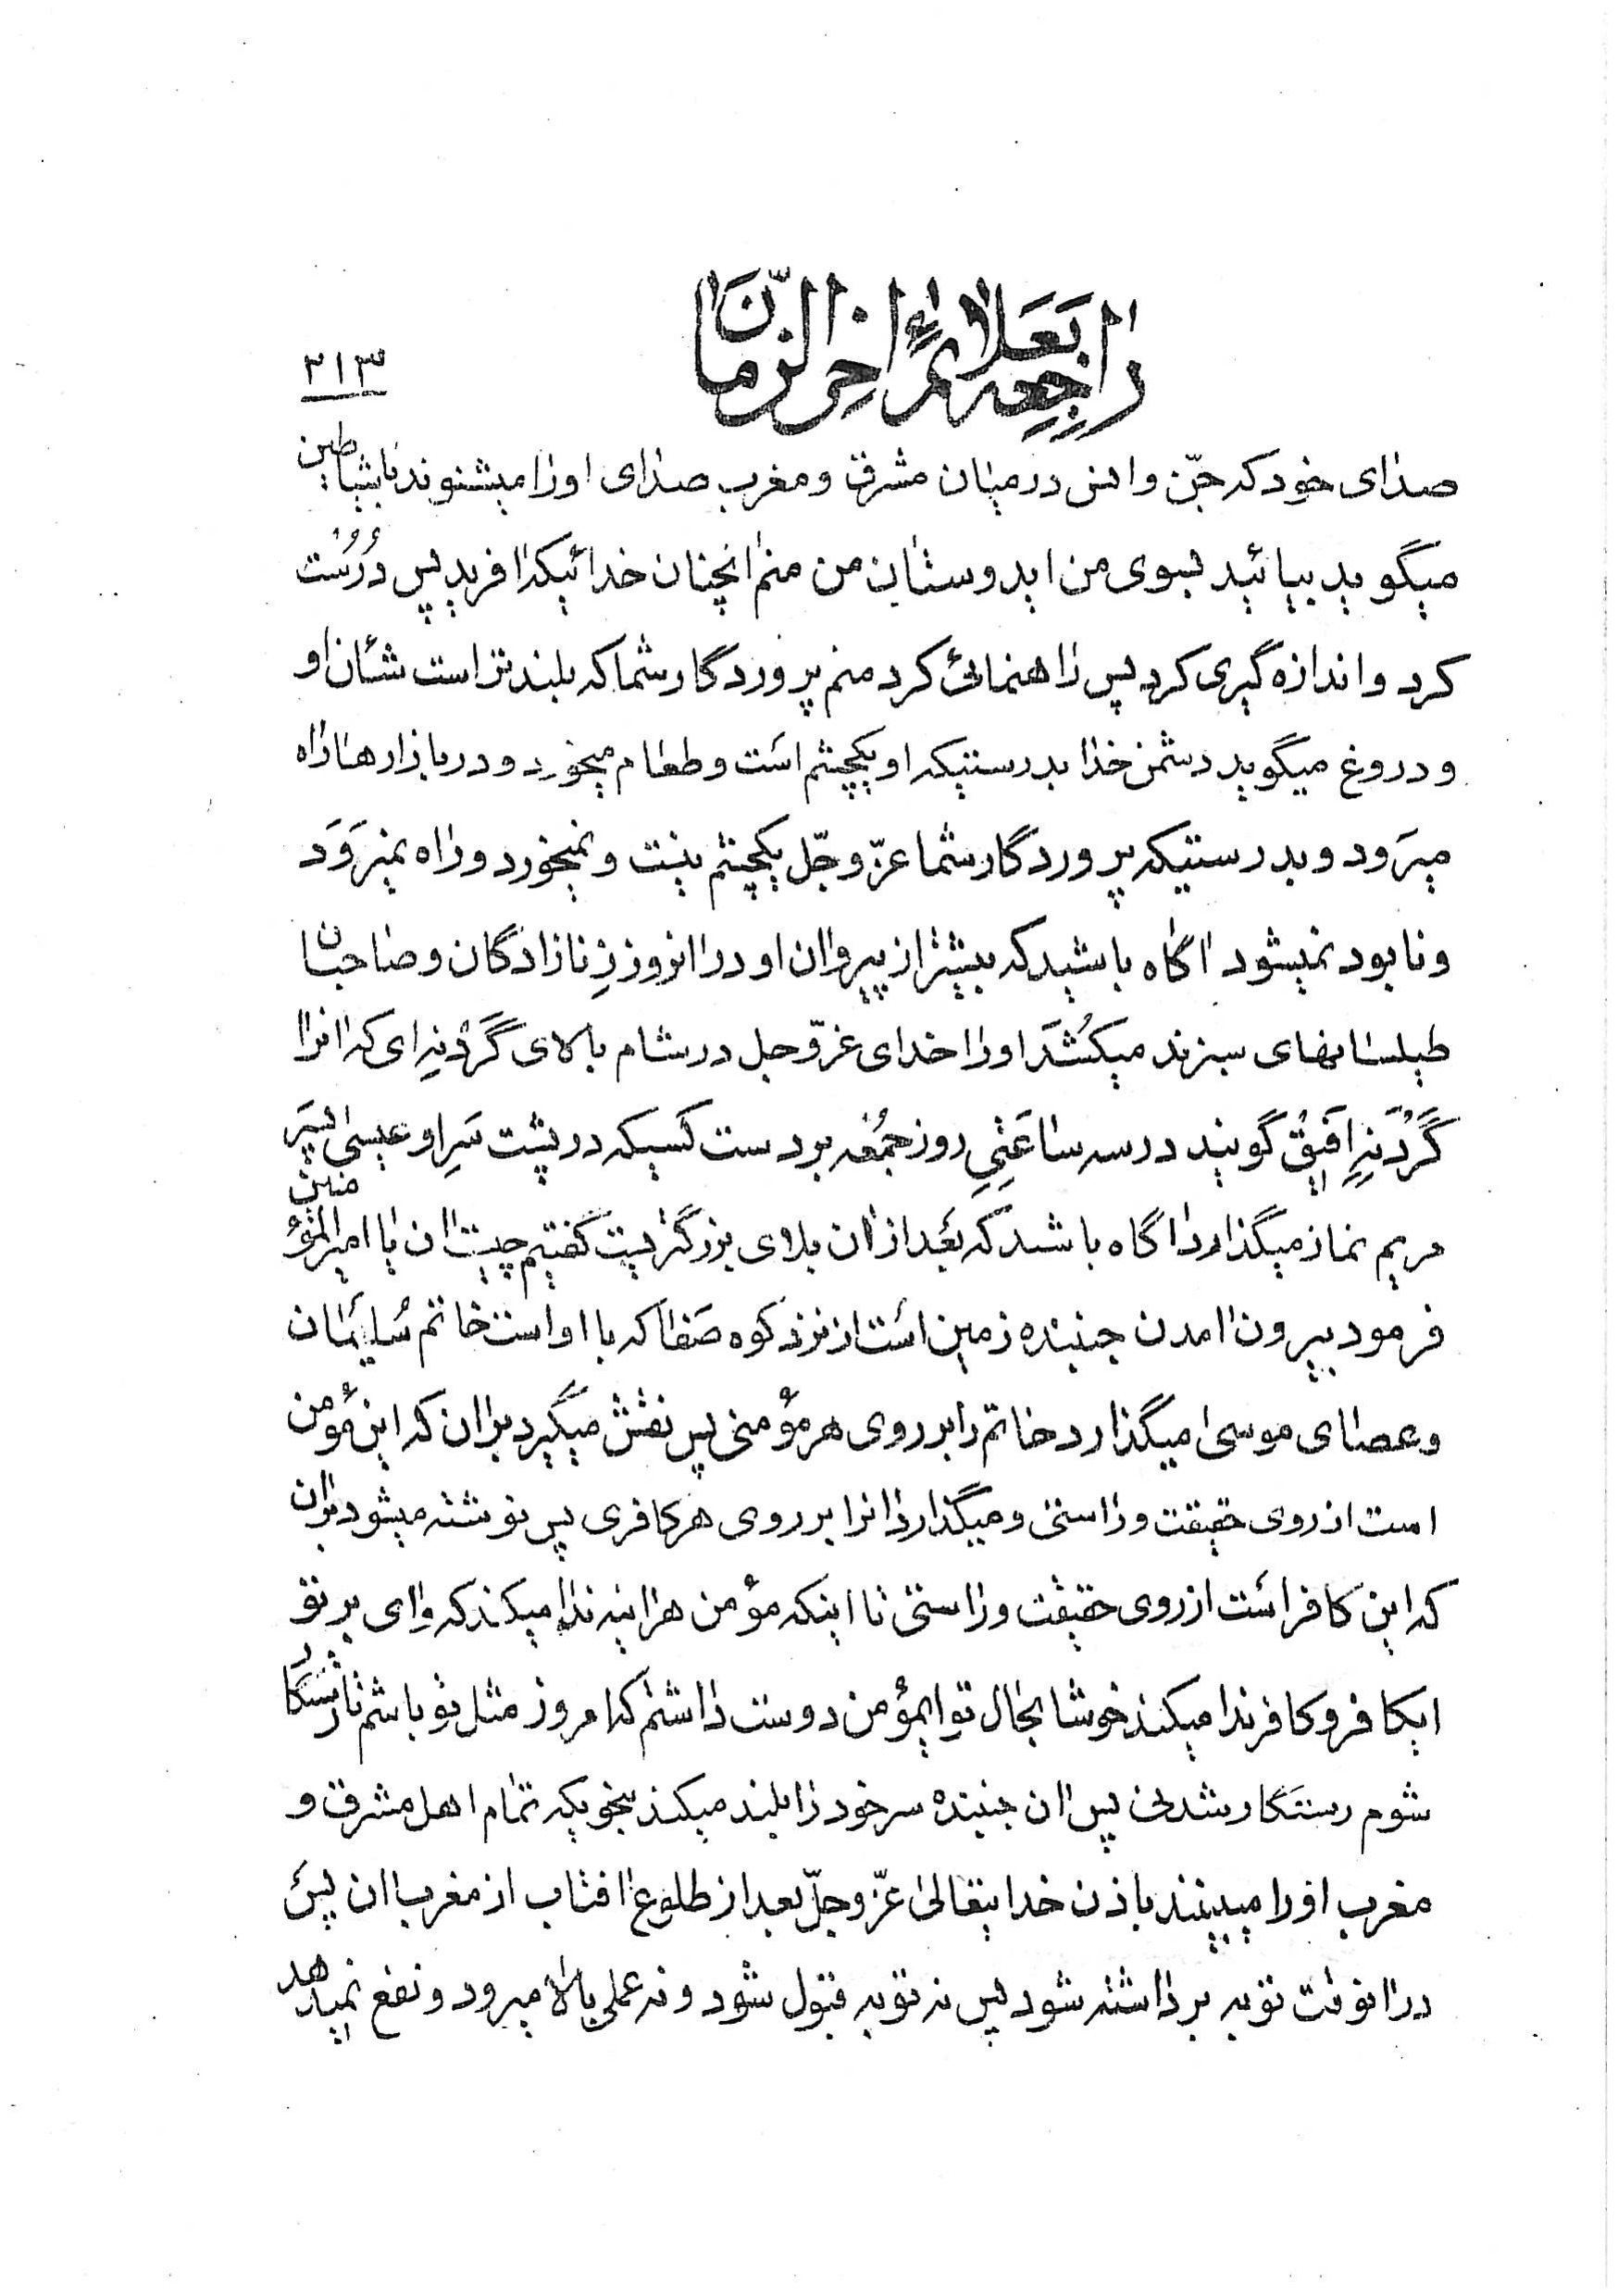 راجعه بعلائم اخر الزّمان
۲۱۳
صدای خود که جنّ و انس در میان مشرق و مغرب صدای او را میشنوند تا شیاطین
میگوید بیائید بسوی من ایدوستان من منم انچنان خدائیکه افرید پس دُرُست
کرد و اندازه گیری کرد پس راهنمائی کرد منم پروردگار شما که بلند تر است شئان او
و دروغ میگوید دشمن خدا بدرستیکه او یکچشم است و طعام میخورد و در بازارها راه
میرَود و بدرستیکه پروردگار شما عزّ و جّل یکچشم نیست و نمیخورد و راه نمیرَوَد
و نابود نمیشود اگاه باشید که بیشتر از پیروان او در انروز زِنازادگان و صاحبان
طیلسانهای سبزند میکُشَد او را خدای عزّ و جل در شام بالای گَردَنِه ای که انرا
گَردَنهِ اَفیق گویند در سه ساعَتیِ روز جُمُعه بر دست کسیکه در پشت سَرِ او عیسی پسَر
مریم نماز میگذارد اگاه باشد که بَعد از ان بلای بزرگیست گفتیم چیست ان یا امیرالمؤمنین
فرمود بیرون امدن جنبنده زمین است از نزد کوه صَفا که با او است خاتم سُلیمان
و عصای موسی میگذارد خاتم را بر روی هر مؤمنی پس نقش میگیرد بران که این مؤمن
است از روی حقیقت و راستی و میگذارد انرا بر روی هر کافری پس نوشته میشود بران
که این کافر است از روی حقیقت و راستی تا اینکه مؤمن هراینه ندا میکند که وای بر تو
ایکافر و کافر ندا میکند خوشا بحال تو ایمؤمن دوست داشتم که امروز مثل تو باشم تا رستگار
شوم رستگار شدنی پس ان جنبنده سر خود را بلند میکند بنحویکه تمام اهل مشرق و
مغرب او را میبینند باذن خدایتعالی عزّ و جلّ بعد از طلوع افتاب از مغرب ان پس
در انوقت توبه برداشته شود پس نه توبه قبول شود و نه عملی بالا میرود و نفع نمیدهد